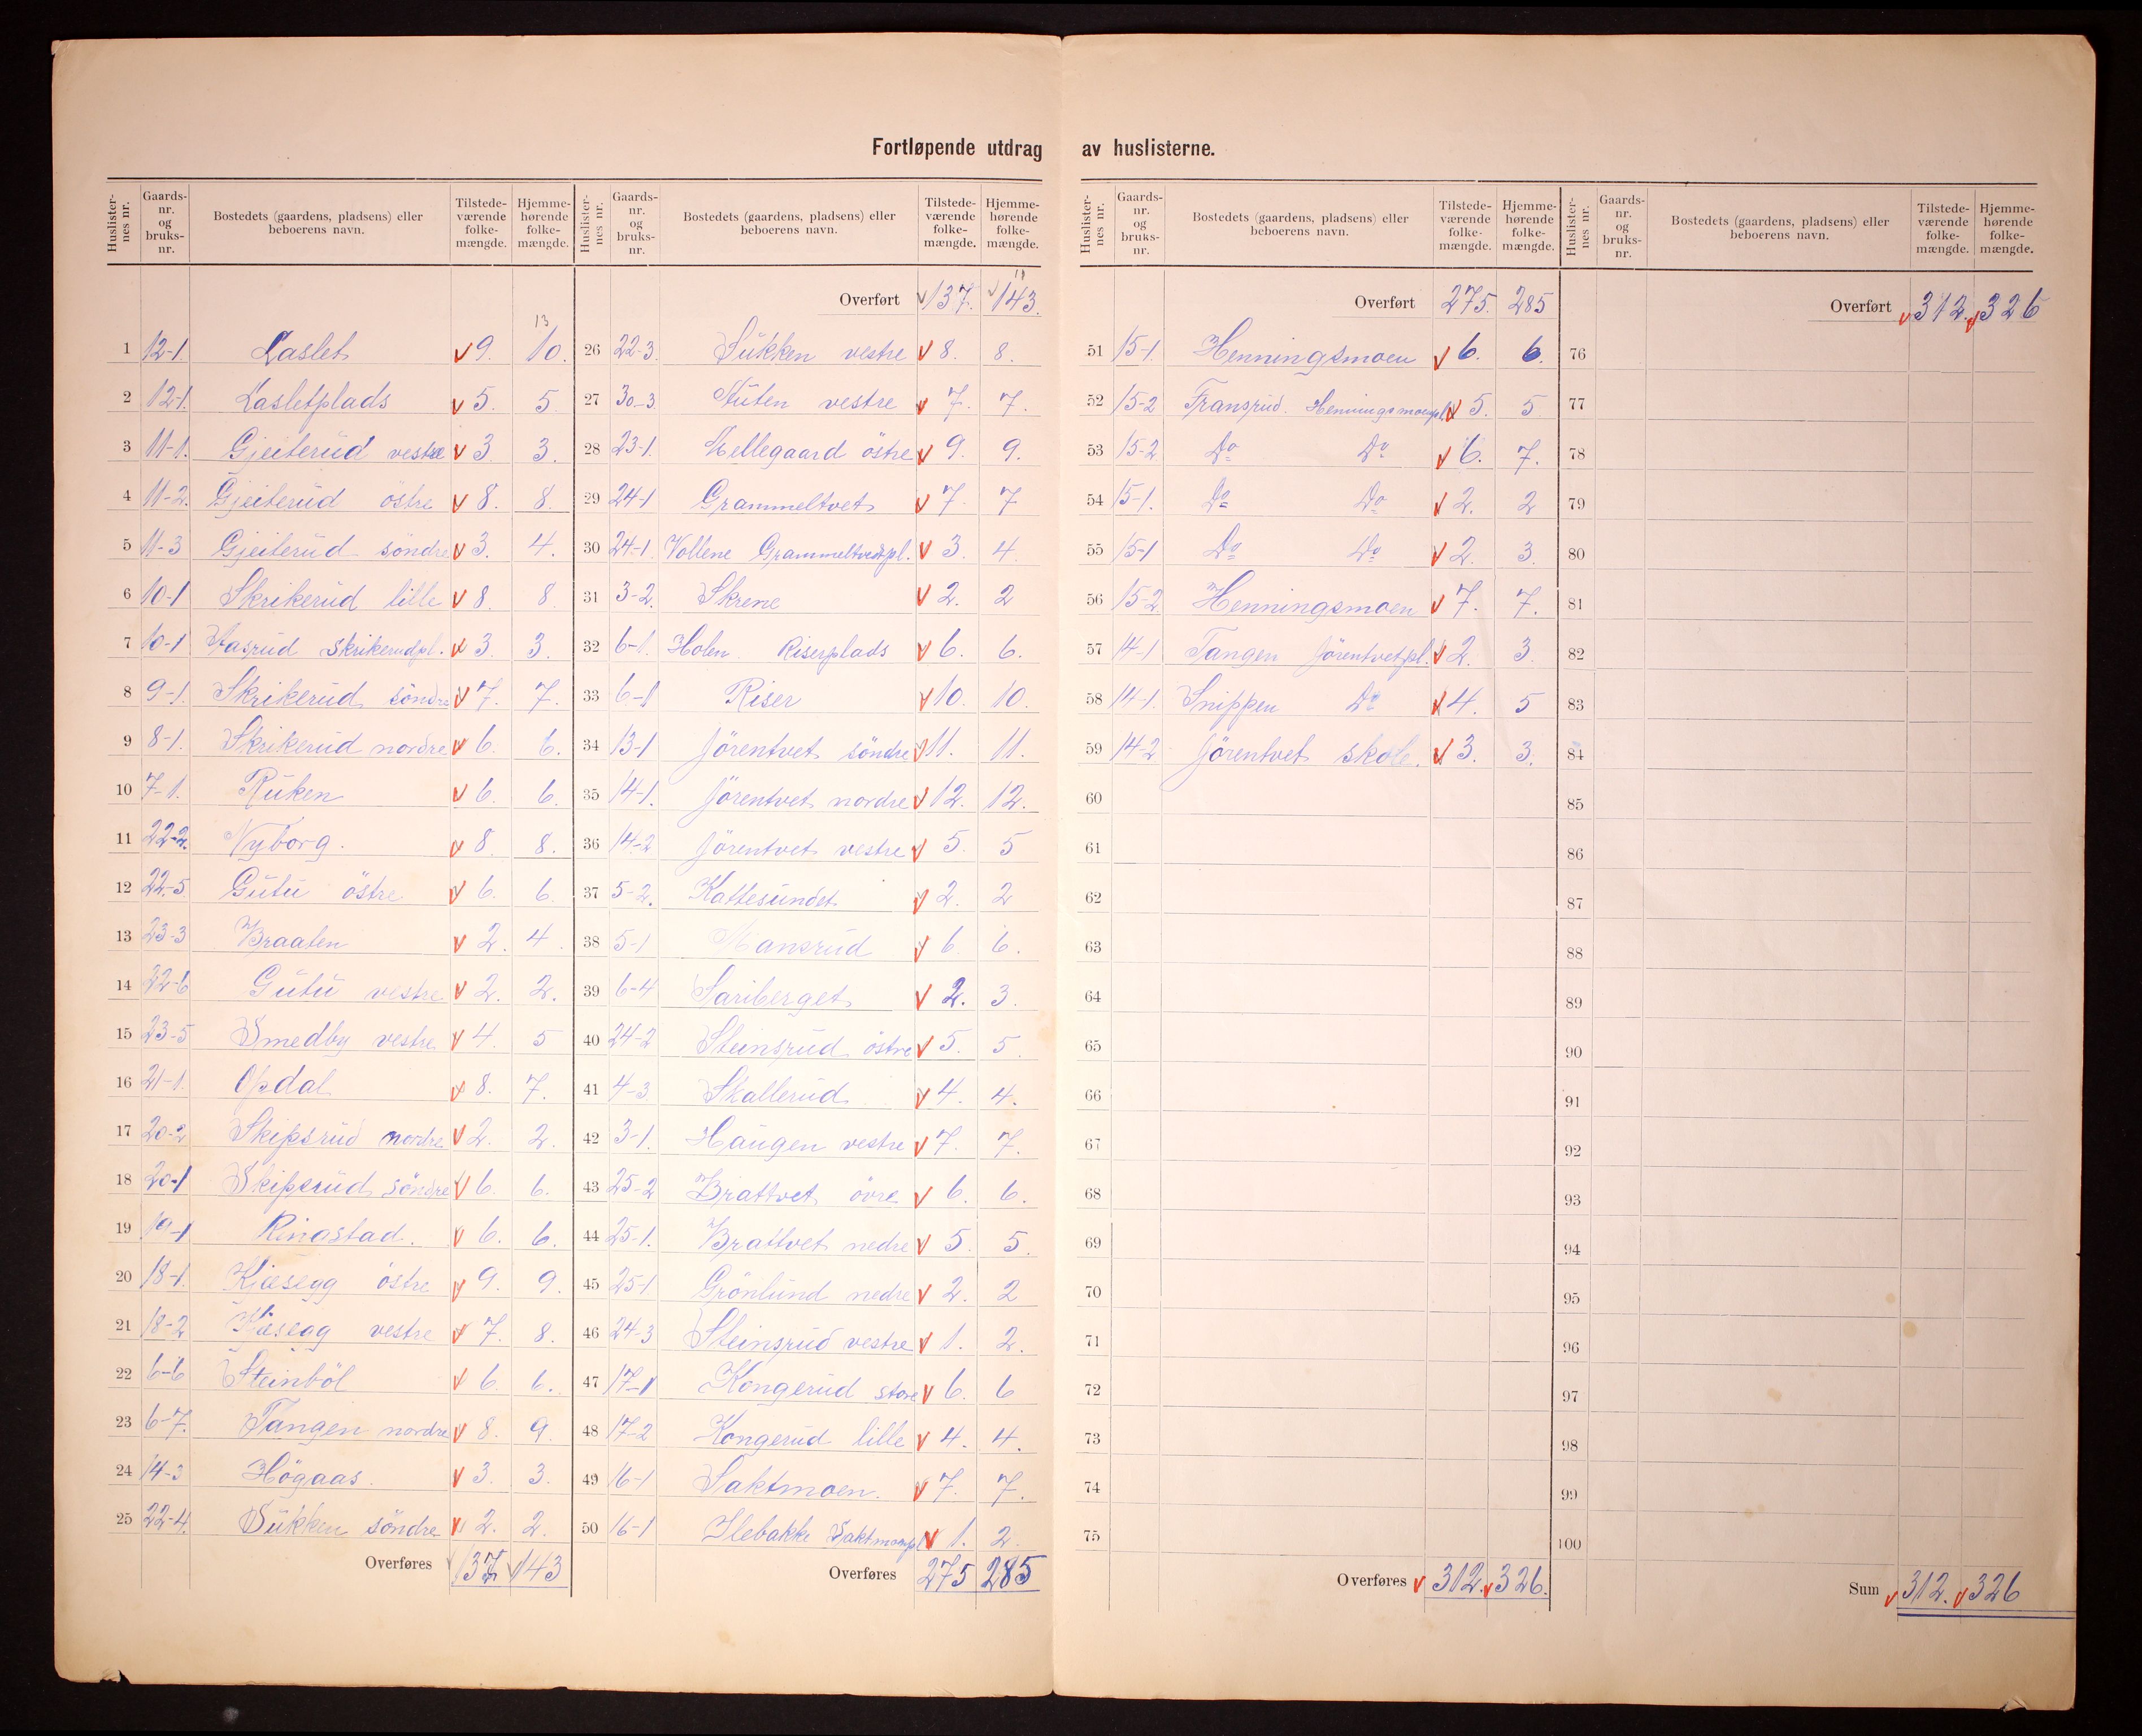 Fortløpende utdrag av huslisterne.
Huslister-nes nr. | Gaards-nr. og bruks-nr. | Bostedets (gaardens, pladsens) eller beboerens navn. | Tilstede-værende folke-mængde. | Hjemme-hørende folke-mængde.
13
1 12-1 Laslet 9. 10.
2 12-1. Lasletplads 5. 5.
3 11-1. Gjeiterud vestre 3 3.
4 11-2. Gjeiterud östre 8. 8.
5 11-3 Gjeiterud söndre 3. 4.
6 10-1 Skrikerud lille 8. 8.
7 10-1 Aasrud Skrikerudpl. 3. 3.
8 9-1. Skrikerud söndre 7. 7.
9 8-1. Skrikerud nordre 6. 6.
10 7-1. Ruken 6. 6.
11 22-2. Nyborg. 8. 8.
12 22-5. Gutu östre 6. 6.
13 23-3 Braaten 2. 4.
14 22-6 Gutu vestre 2. 2.
15 23-5 Smedby vestre 4. 5
16 21-1. Opdal 8. 7.
17 20-2 Skipsrud nordre 2. 2.
18 20-1 Skipsrud söndre 6. 6.
19 19-1 Ringstad. 6. 6.
20 18-1. Kjæsegg östre 9. 9.
21 18-2 Kjæsegg vestre 7. 8.
22 6-6 Steinböl 6. 6.
23 6-7. Tangen nordre 8. 9.
24 14-3 Högaas. 3. 3.
25 22-4. Sukken söndre 2. 2.
Overføres 137. 143
Huslister-nes nr. | Gaards-nr. og bruks-nr. | Bostedets (gaardens, pladsens) eller beboerens navn. | Tilstede-værende folke-mængde. | Hjemme-hørende folke-mængde.
Overført 137. 143.
26 22-3. Sukken vestre 8. 8.
27 30-3 vestre 7. 7.
28 23-1. Mellegaard östre 9. 9.
29 24-1 Grammeltvet 7. 7
30 24-1. Vollene Grammeltvedtpl. 3. 4.
31 3-2. Skrene 2. 2
32 6-1. Holen Riserplads 6. 6.
33 6-1 Riser 10. 10.
34 13-1 Jörentvet söndre 11. 11.
35 14-1. Jörentvet nordre 12. 12.
36 14-2 Jörentvet vestre 5. 5
37 5-2. Kattesundet 2. 2
38 5-1 Mansrud 6. 6.
39 6-4 Sariberget 2. 3.
40 24-2 Steinsrud östre 5. 5.
41 4-3. Skallerud 4. 4.
42 3-1. Haugen vestre 7. 7.
43 25-2 Brattvet övre 6. 6.
44 25-1. Brattvet nedre 5. 5.
45 25-1 Grönlund nedre 2. 2
46 24-3 Steinsrud vestre 1. 2.
47 17-1 Kongerud store 6. 6
48 17-2 Kongerud lille 4. 4.
49 16-1 Saktmoen. 7. 7.
50 16-1 Ilebakke Saktmoenpl 1. 2.
Overføres 275 285
Huslister-nes nr. | Gaards-nr. og bruks-nr. | Bostedets (gaardens, pladsens) eller beboerens navn. | Tilstede-værende folke-mængde. | Hjemme-hørende folke-mængde.
Overført 275. 285
51 15-1. Henningsmoen 6. 6.
52 15-2 Fransrud. Henningsmoenpl 5. 5
53 15-2 Do Do 6. 7.
54 15-1. Do Do 2. 2
55 15-1 Do Do 2. 3.
56 15-2 Henningsmoen 7. 7.
57 14-1 Tangen Jörentvetpl. 2. 3.
58 14-1. Snippen Do 4. 5
59 14-2 Jörentvet skole. 3. 3.
60
61
62
63
64
65
66
67
68
69
70
71
72
73
74
75
Overføres 312. 326.
Huslister-nes nr. | Gaards-nr. og bruks-nr. | Bostedets (gaardens, pladsens) eller beboerens navn. | Tilstede-værende folke-mængde. | Hjemme-hørende folke-mængde.
Overført 312. 326
76
77
78
79
80
81
82
83
84
85
86
87
88
89
90
91
92
93
94
95
96
97
98
99
100
Sum 312. 326